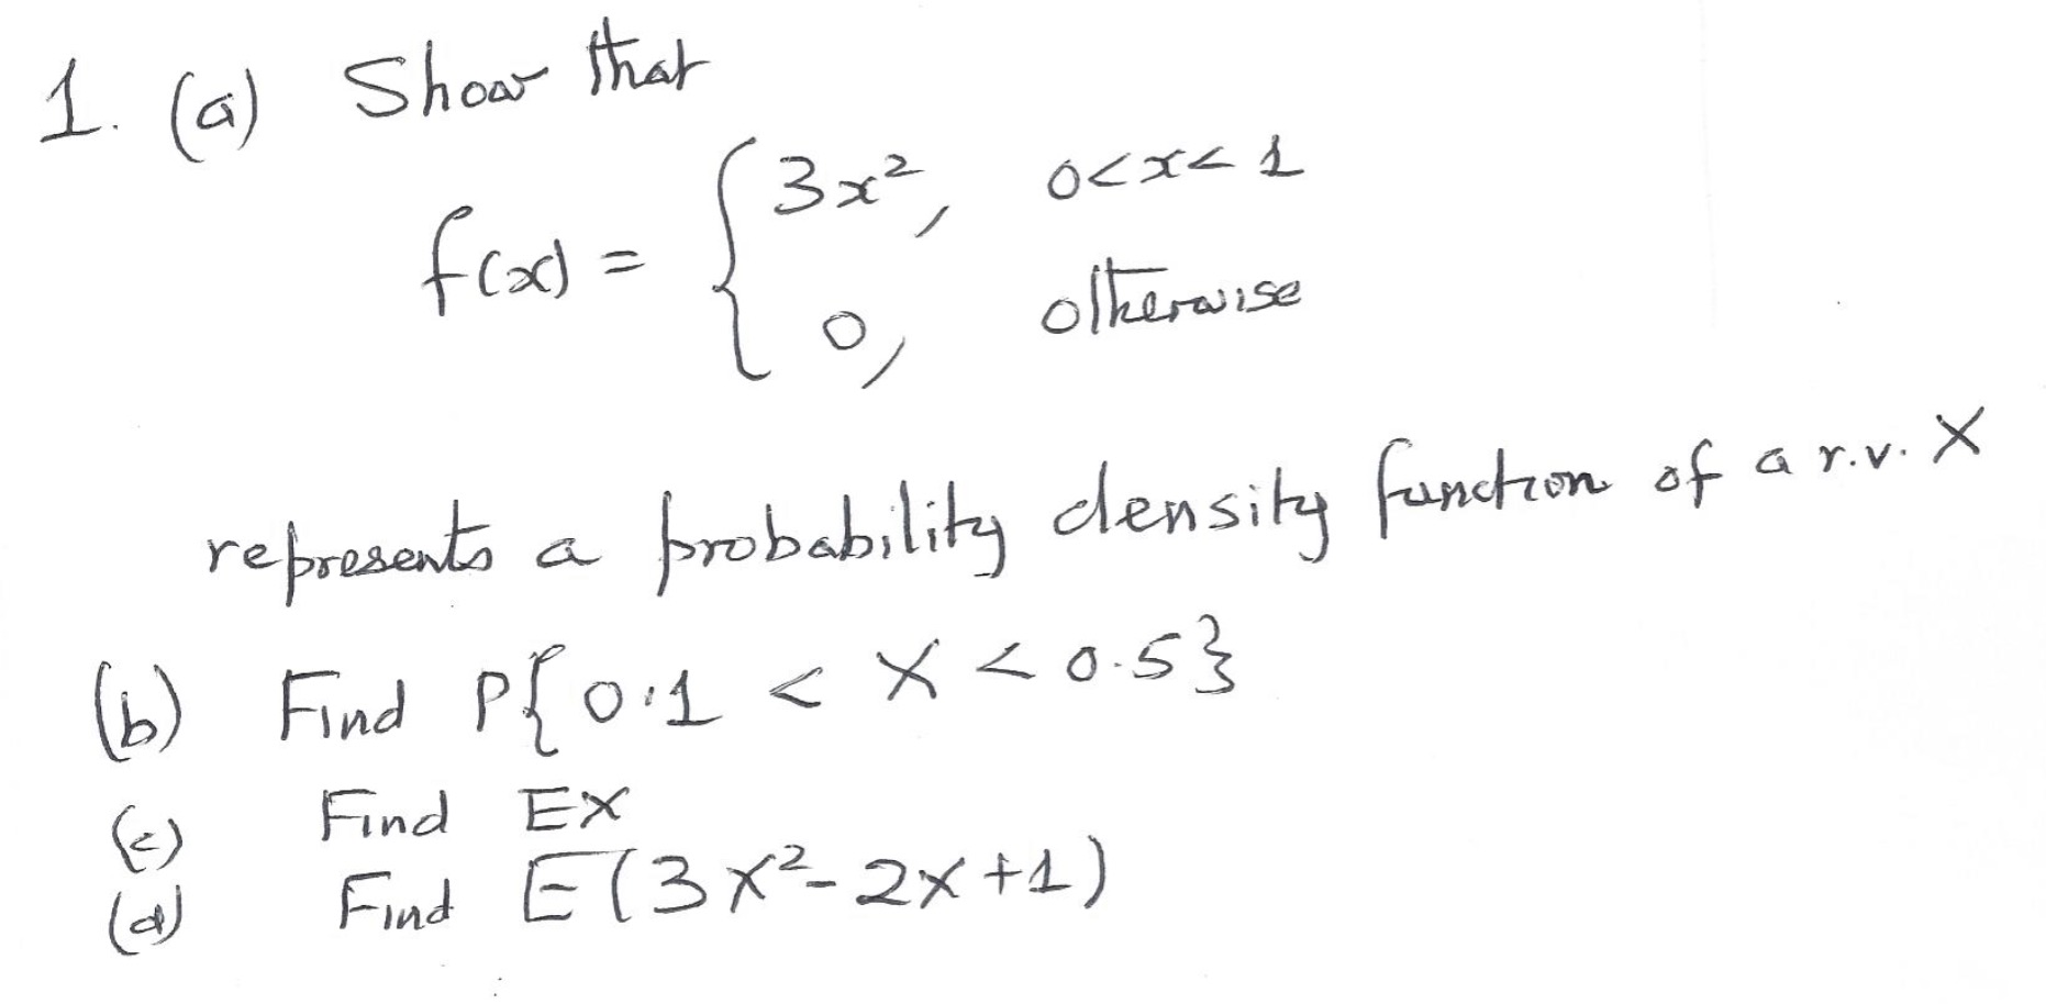 1. (a) Show that
f(x) = { 3x², 0<x<1
0, otherwise
represents a probability density function of a r.v. X
(b) Find P{0.1 < X < 0.5}
(c) Find EX
(d) Find E(3X²-2X+1)